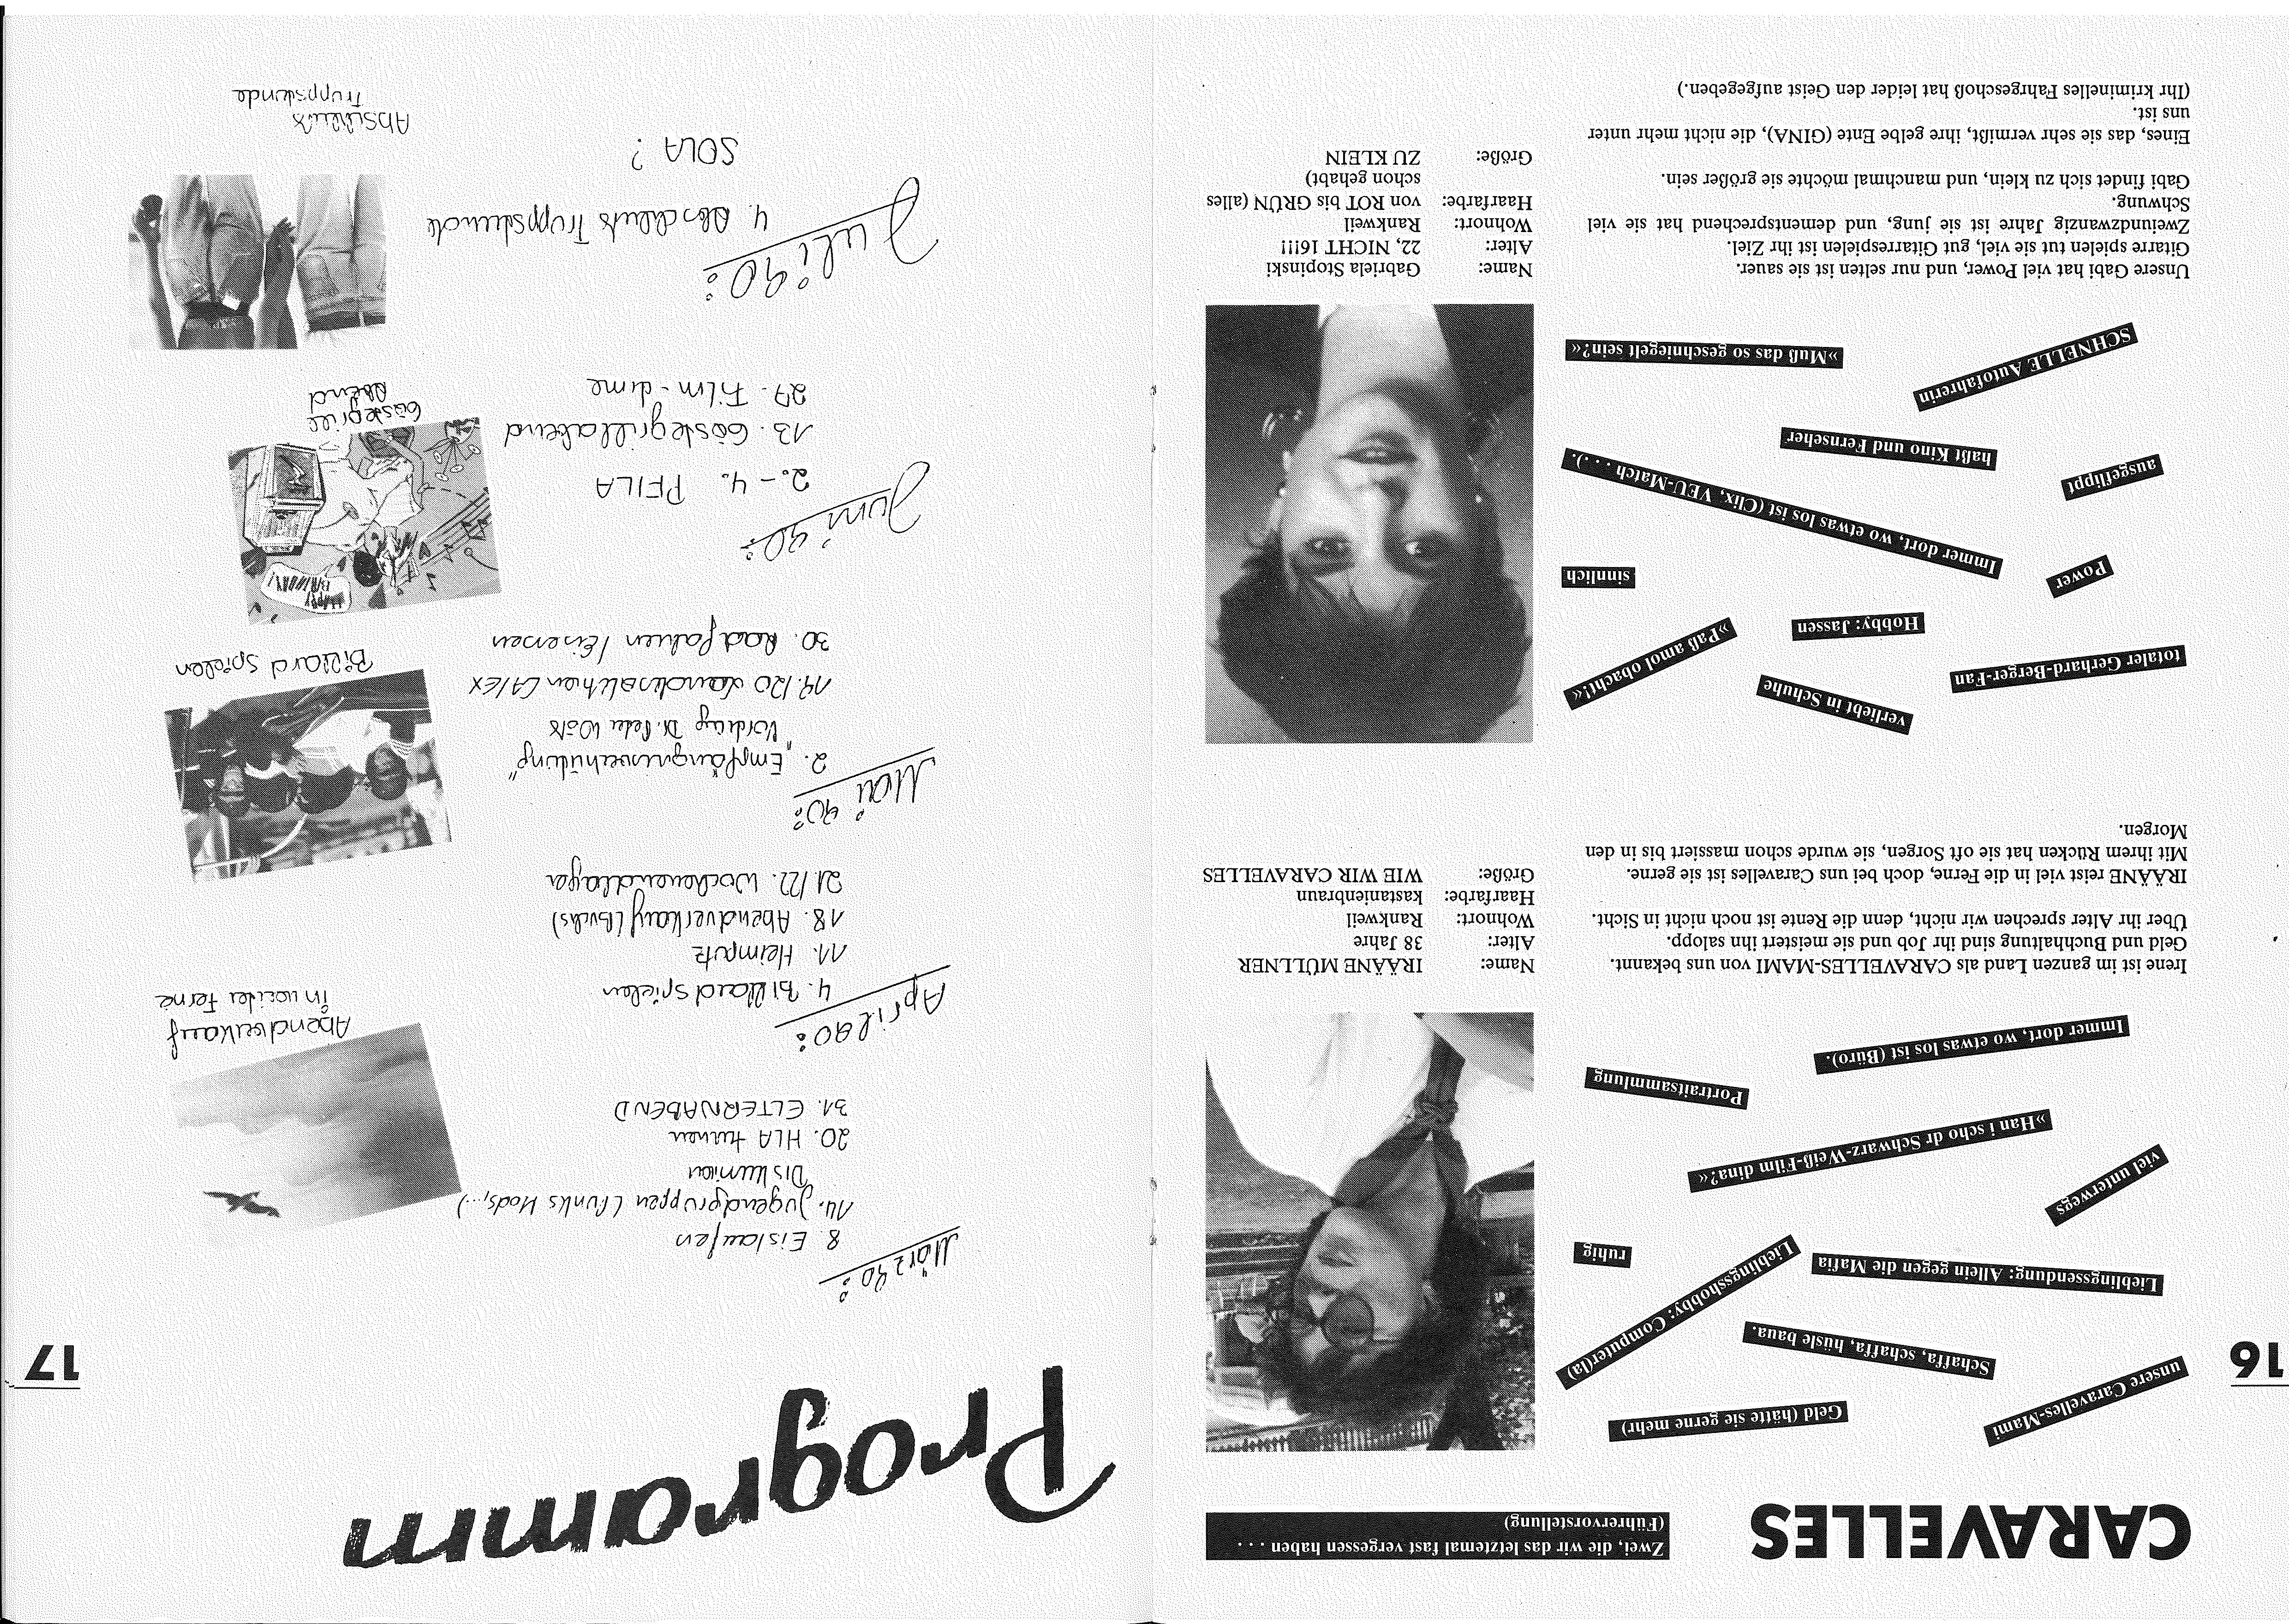 16
CARAVELLES
Zwei, die wir das letztemal fast vergessen haben . . .
(Führervorstellung)
unsere Caravelles-Mami
Geld (hätte sie gerne mehr)
Schaffa, schaffa, hüsle baua.
Lieblingshobby: Computer(la)
Lieblingssendung: Allein gegen die Mafia
ruhig
viel unterwegs
»Han i scho dr Schwarz-Weiß-Film dina?«
Portraitsammlung
Immer dort, wo etwas los ist (Büro).
Irene ist im ganzen Land als CARAVELLES-MAMI von uns bekannt.
Geld und Buchhaltung sind ihr Job und sie meistert ihn salopp.
Über ihr Alter sprechen wir nicht, denn die Rente ist noch nicht in Sicht.
IRÄÄNE reist viel in die Ferne, doch bei uns Caravelles ist sie gerne.
Mit ihrem Rücken hat sie oft Sorgen, sie wurde schon massiert bis in den
Morgen.
Name: IRÄÄNE MÜLLNER
Alter: 38 Jahre
Wohnort: Rankweil
Haarfarbe: kastanienbraun
Größe: WIE WIR CARAVELLES
totaler Gerhard-Berger-Fan
verliebt in Schuhe
»Paß amol obacht!«
Hobby: Jassen
Power
sinnlich
Immer dort, wo etwas los ist (Clix, VEU-Match . . .).
ausgeflippt
haßt Kino und Fernseher
SCHNELLE Autofahrerin
»Muß das so geschniegelt sein?«
Unsere Gabi hat viel Power, und nur selten ist sie sauer.
Gitarre spielen tut sie viel, gut Gitarrespielen ist ihr Ziel.
Zweiundzwanzig Jahre ist sie jung, und dementsprechend hat sie viel
Schwung.
Gabi findet sich zu klein, und manchmal möchte sie größer sein.
Eines, das sie sehr vermißt, ihre gelbe Ente (GINA), die nicht mehr unter
uns ist.
(Ihr kriminelles Fahrgeschoß hat leider den Geist aufgegeben.)
Name: Gabriela Stopinski
Alter: 22, NICHT 16!!!
Wohnort: Rankweil
Haarfarbe: von ROT bis GRÜN (alles
schon gehabt)
Größe: ZU KLEIN
17
Programm
März 90:
8. Eislaufen
14. Jugendgruppen (Punks Mods,...)
Diskussion
20. HLA turnen
31. ELTERNABEND
April 90:
4. Billard spielen
11. Heimputz
18. Abendverkauf (Buchs)
21./22. Wochenendlager
Mai 90:
2. „Empfängnisverhütung"
Vortrag Dr. Peter
19./20 Landesralichen CA/EX
30. Radfahren / Eisessen
Juni 90:
2.-4. PFILA
13. Gästegrillabend
27. Film-
Juli 90:
4. Abschluss Truppstunde
SOLA ?
Abendverkauf
in weiter Ferne
Billard Spielen
HAPPY
BIRTHDAY!
Gästegrill
Abend
Abschluss
Truppstunde